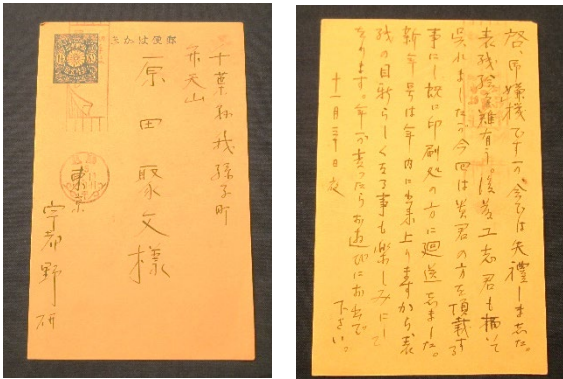 郵便はかき
千葉縣我孫子町
弁天山
原田聚文様
東京
宇都野研
啓、御機嫌ですか、会では失禮しました。
表紙絵有難う。後藤工志君も描いて
呉れましたが今回は貴君の方を頂戴する
事にし既に印刷処の方に廻送しました。
新年号は年内に出来上りますから表
紙の目新らしくなる事も楽しみにして
おります。年が変ったらお遊びにお出で
下さい。
十一月三十日夜